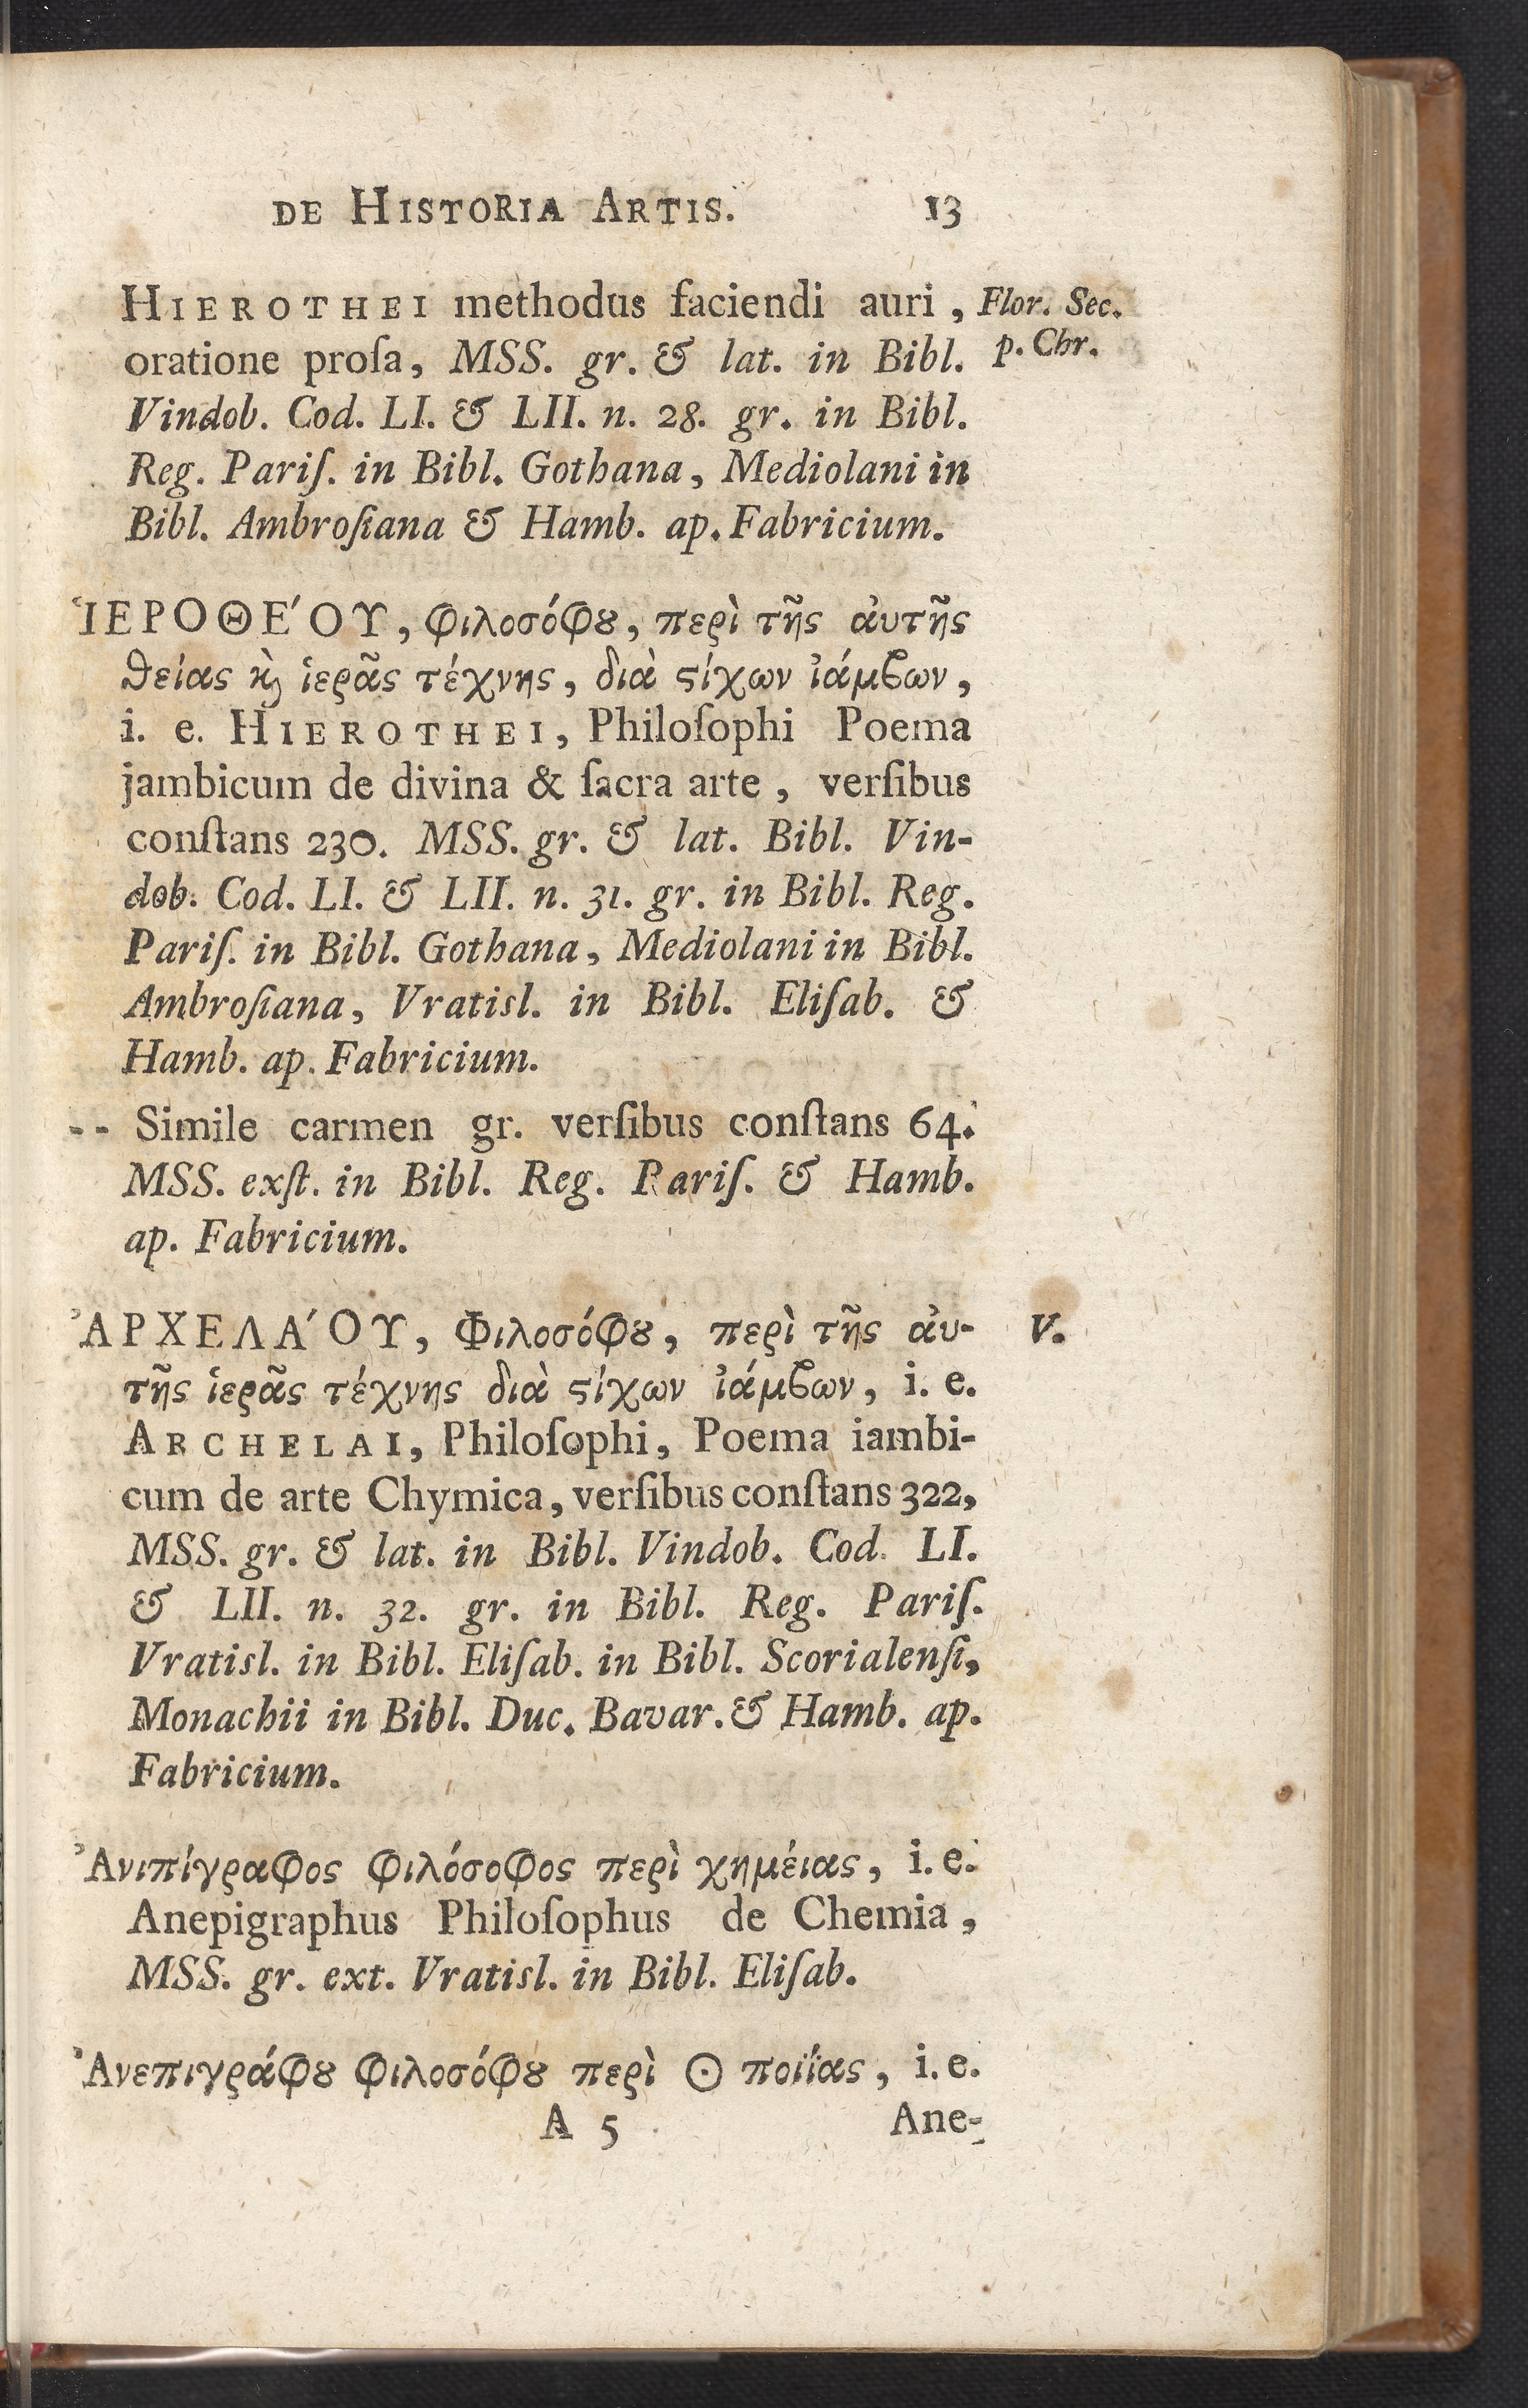 DE HISTORIA ARTIS. 13
HIEROTHEI methodus faciendi auri, Flor. Sec.
oratione proſa, MSS. gr. & lat. in Bibl. p. Chr.
Vindob. Cod. LI. & LII. n. 28. gr. in Bibl.
Reg. Pariſ. in Bibl. Gothana, Mediolani in
Bibl. Ambroſiana & Hamb. ap. Fabricium.
ἹΕΡΟΘΕ΄ΟΥ, φιλοσόφȣ, περὶ τῆς ἀυτῆς
θείας ϗ̀ ἱερᾶς τέχνης, διὰ ϛίχων ἰάμβων,
i. e. HIEROTHEI, Philoſophi Poema
jambicum de divina & ſacra arte, verſibus
conſtans 230. MSS. gr. & lat. Bibl. Vin-
dob. Cod. LI. & LII. n. 31. gr. in Bibl. Reg.
Pariſ. in Bibl. Gothana, Mediolani in Bibl.
Ambroſiana, Vratisl. in Bibl. Eliſab. &
Hamb. ap. Fabricium.
-- Simile carmen gr. verſibus conſtans 64.
MSS. exſt. in Bibl. Reg. Pariſ. & Hamb.
ap. Fabricium.
ἈΡΧΕΛΑ΄ΟΥ, Φιλοσόφȣ, περὶ τῆς ἀυ- V.
τῆς ἱερᾶς τέχνης διὰ ϛίχων ἰάμβων, i. e.
ARCHELAI, Philoſophi, Poema iambi-
cum de arte Chymica, verſibus conſtans 322,
MSS. gr. & lat. in Bibl. Vindob. Cod. LI.
& LII. n. 32. gr. in Bibl. Reg. Pariſ.
Vratisl. in Bibl. Eliſab. in Bibl. Scorialenſi,
Monachii in Bibl. Duc. Bavar. & Hamb. ap.
Fabricium.
Ἀνιπίγραφος φιλόσοφος περὶ χημέιας, i. e.
Anepigraphus Philoſophus de Chemia,
MSS. gr. ext. Vratisl. in Bibl. Eliſab.
Ἀνεπιγράφȣ φιλοσόφȣ περὶ ☉ ποιΐας, i. e.
A 5 Ane-